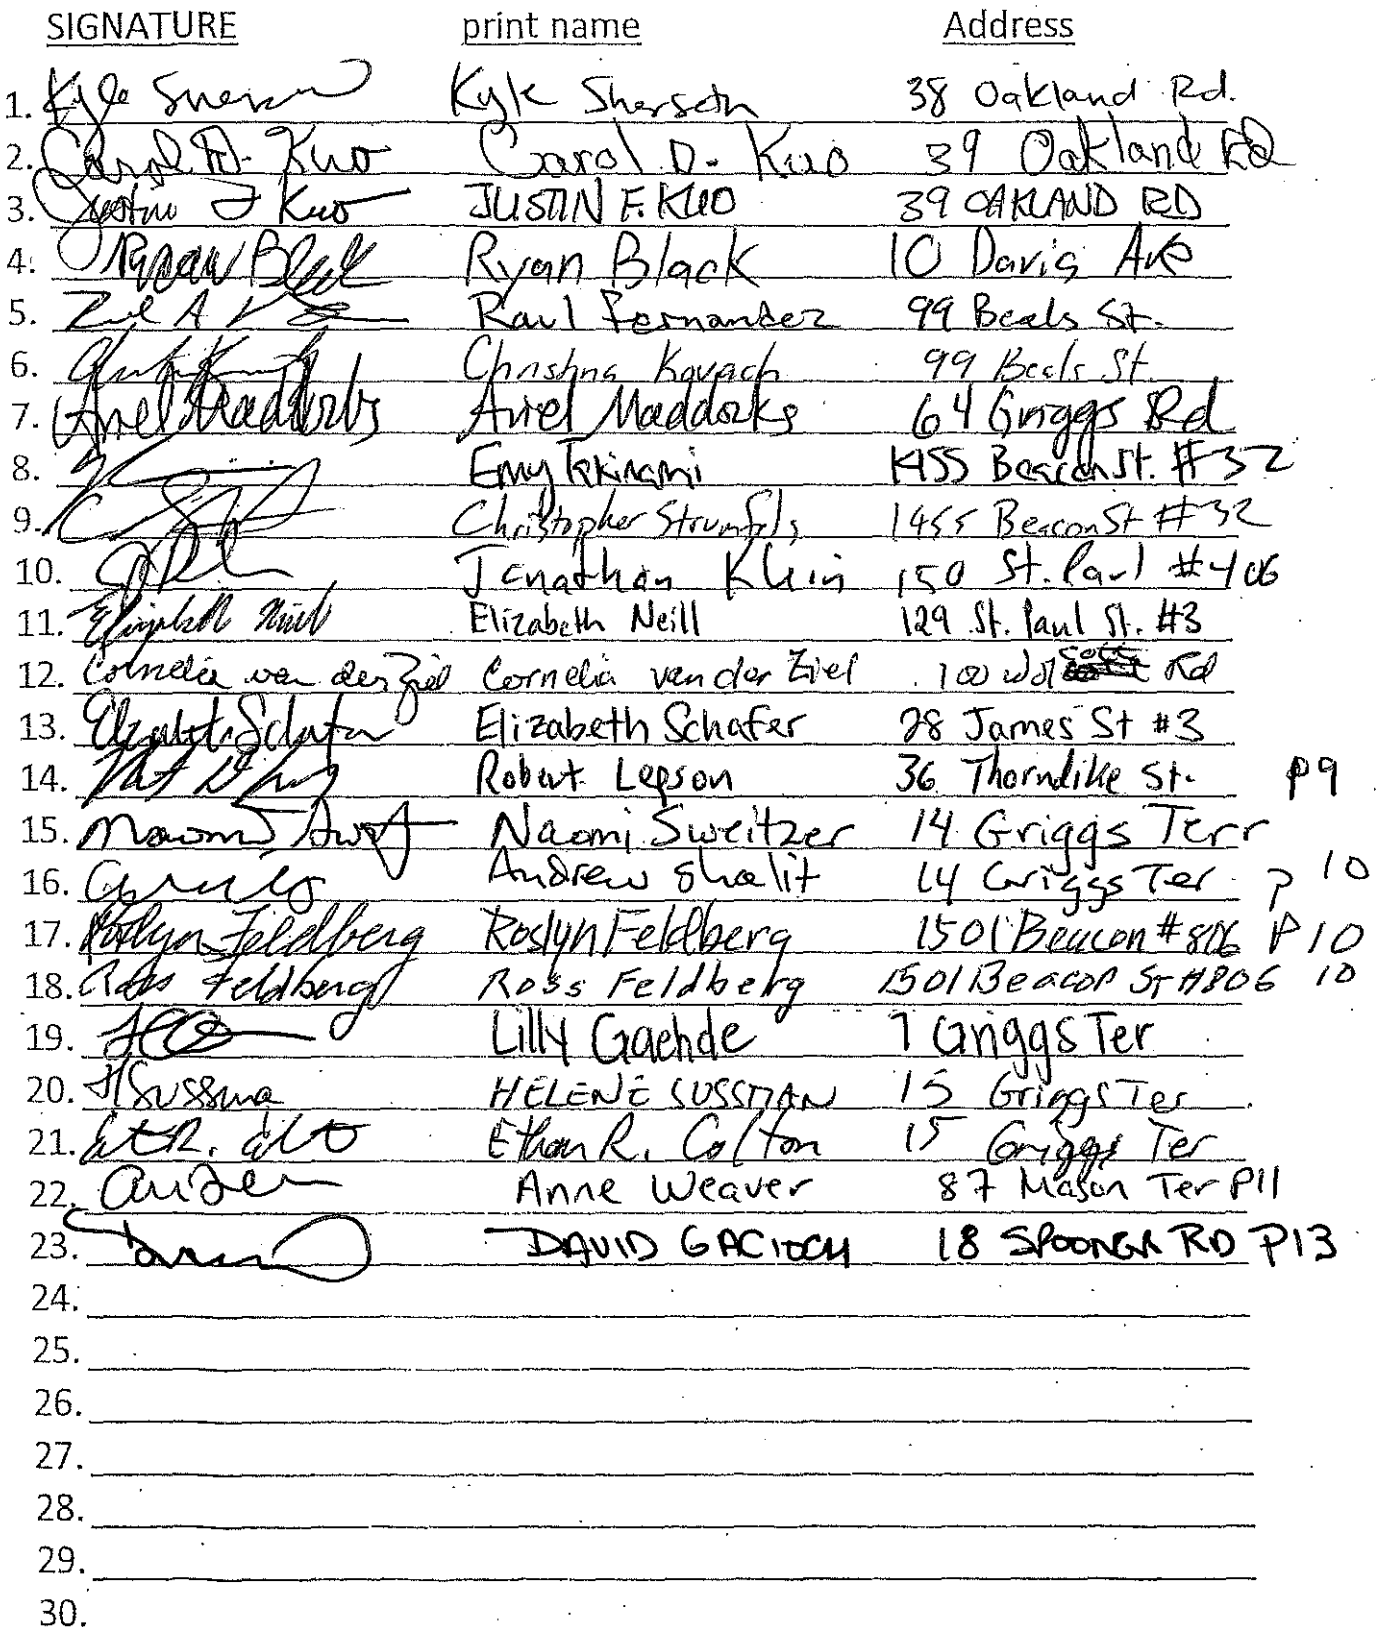 SIGNATURE print name Address
1. Kyle 38 Oakland Rd.
2. Carol D. Kuo Carol D. Kuo 39 Oakland Rd
3. Justin F Kuo JUSTIN F. KUO 39 OAKLAND RD
4. Ryan Black Ryan Black 10 Davis Ave
5. Raul Fernandez 99 Beals St.
6. Christina Kovach 99 Beals St.
7. Ariel Maddocks Ariel Maddocks 64 Griggs Rd
8. Emy Takinami 1455 Beacon St. #32
9. Christopher 1455 Beacon St #32
10. Jonathan Klein 150 St. Paul #406
11. Elizabeth Neill Elizabeth Neill 129 St. Paul St. #3
12. Cornelia van der Ziel Cornelia van der Ziel 100 Rd
13. Elizabeth Schafer Elizabeth Schafer 28 James St #3
14. Robert Lepson 36 Thorndike St. P9
15. Naomi Sweitzer 14 Griggs Terr
16. Andrew Shalit 14 Griggs Ter P 10
17. Roslyn Feldberg Roslyn Feldberg 1501 Beacon #806 P10
18. Ross Feldberg Ross Feldberg 1501 Beacon St #806 10
19. Lilly Gaehde 7 Griggs Ter
20. HSussma HELENE SUSSMAN 15 Griggs Ter
21. Ethan R. Colton 15 Griggs Ter
22. Anne Weaver 87 Mason Ter P11
23. DAVID GACIOCH 18 SPOONER RD P13
24.
25.
26.
27.
28.
29.
30.